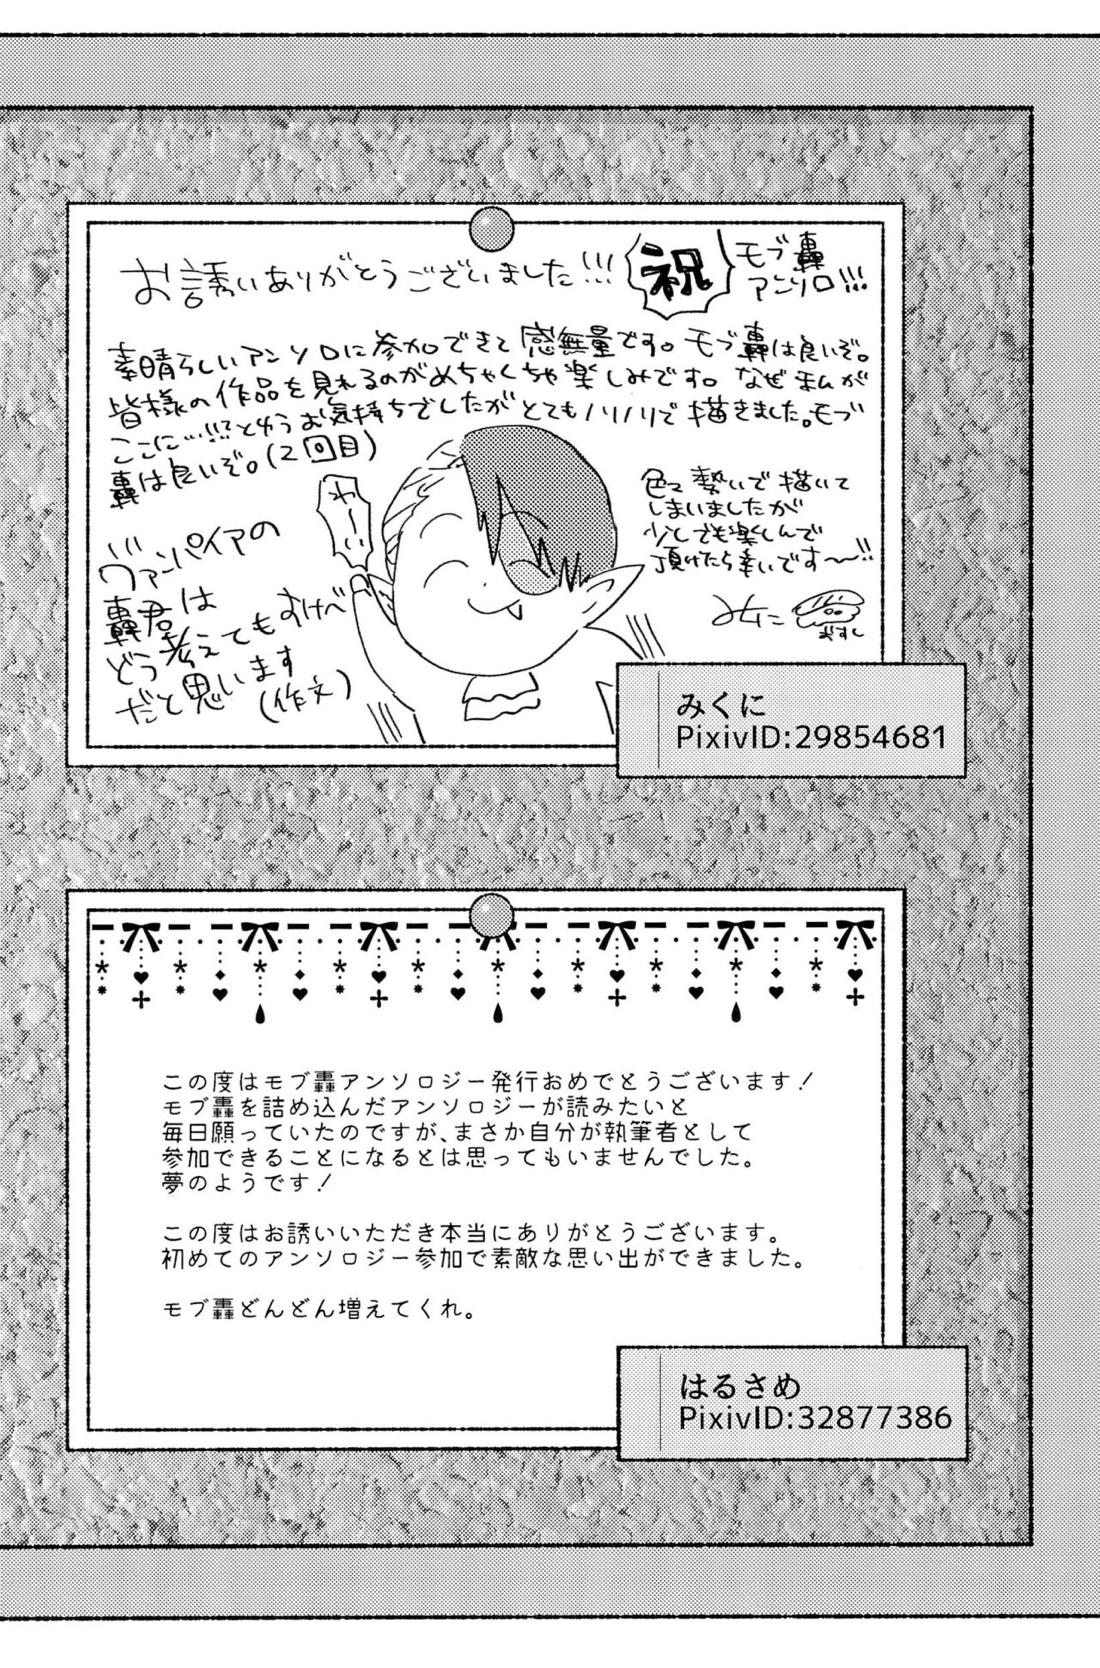 お誘いありがとうございました!!!
祝
モブ轟
アンソロ!!!
素晴らしいアンソロに参加できて感無量です。モブ轟は良いぞ。
皆様の作品を見れるのがめちゃくちゃ楽しみです。なぜ私が
ここに…!!?というお気持ちでしたがとてもノリノリで描きました。モブ
轟は良いぞ。(2回目)
わーい
色々勢いで描いて
しまいましたが
少しでも楽しんで
頂けたら幸いです〜!!
ヴァンパイアの
轟君は
どう考えてもすけべ
だと思います
(作文)
みくに
PixivID:29854681
この度はモブ轟アンソロジー発行おめでとうございます!
モブ轟を詰め込んだアンソロジーが読みたいと
毎日願っていたのですが、まさか自分が執筆者として
参加できることになるとは思ってもいませんでした。
夢のようです!
この度はお誘いいただき本当にありがとうございます。
初めてのアンソロジー参加で素敵な思い出ができました。
モブ轟どんどん増えてくれ。
はるさめ
PixivID:32877386